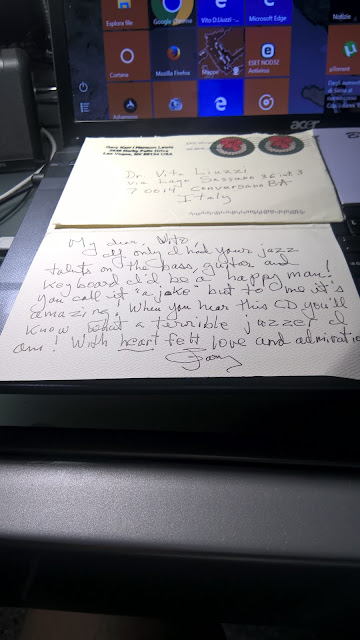 Esplora file
Google Chrome
Vito D.Liuzzi -...
Microsoft Edge
Notizie
Cortana
Mozilla Firefox
Mappe
ESET NOD32
Antivirus
µTorrent
acer
Las Vegas, NV
Dr. Vito Liuzzi
Via Lago Sassuno
70014 Conversano BA
Italy
My dear Vito
If only I had your jazz
talents on the bass, guitar and
keyboard I'd be a happy man!
You call it "a joke" but to me it's
amazing! When you hear this CD you'll
know what a terrible jazzer I
am! With heart felt love and admiratio
Gary